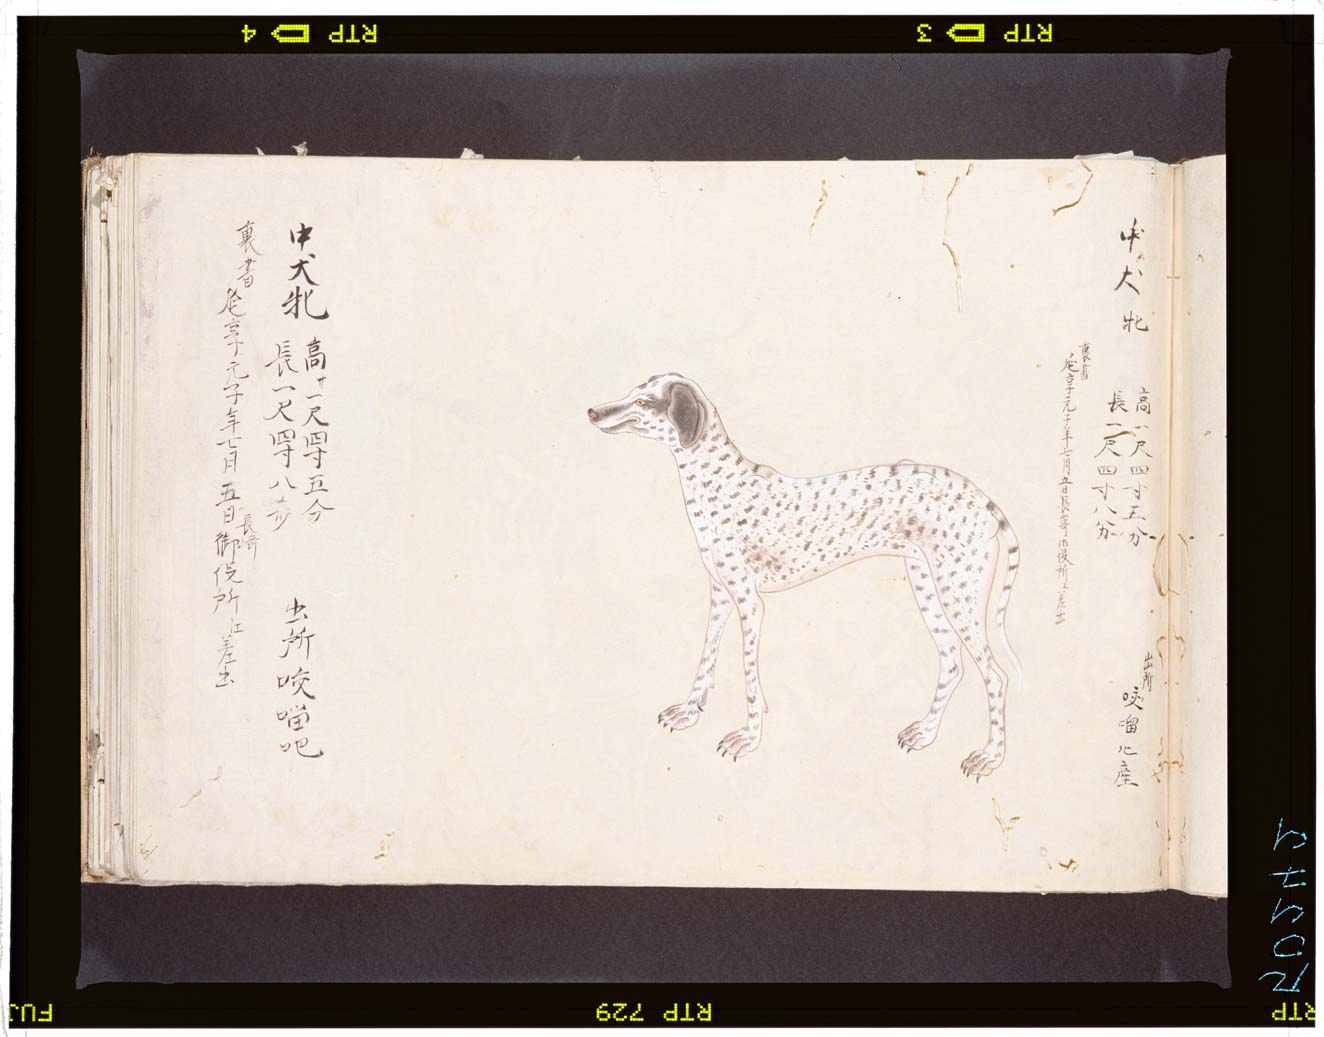 中犬牝
高一尺四寸五分
長一尺四寸八分
出所
咬𠺕吧産
裏書
延享元子年七月五日長崎御役所江差出
中犬牝
高サ一尺四寸五分
長一尺四寸八分
出所咬𠺕吧
裏書
延享元子年七月五日長崎御役所江差出
RTP 4
RTP 3
FUJ
RTP 729
RTP